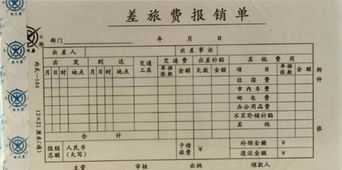 差旅费报销单
部门 年 月 日
出差人 出差事由
出发 到达 交通工具 交通费 出差补贴 其他费用
月 日 时 地点 月 日 时 地点 单据张数 金额 天数 金额 项目 单据张数 金额
住宿费
市内车费
邮电费
办公用品费
不买卧铺补贴
其他
合计
报销总额 人民币(大写) 预借旅费 补领金额
退还金额
主管 审核 出纳 领款人
附件
张